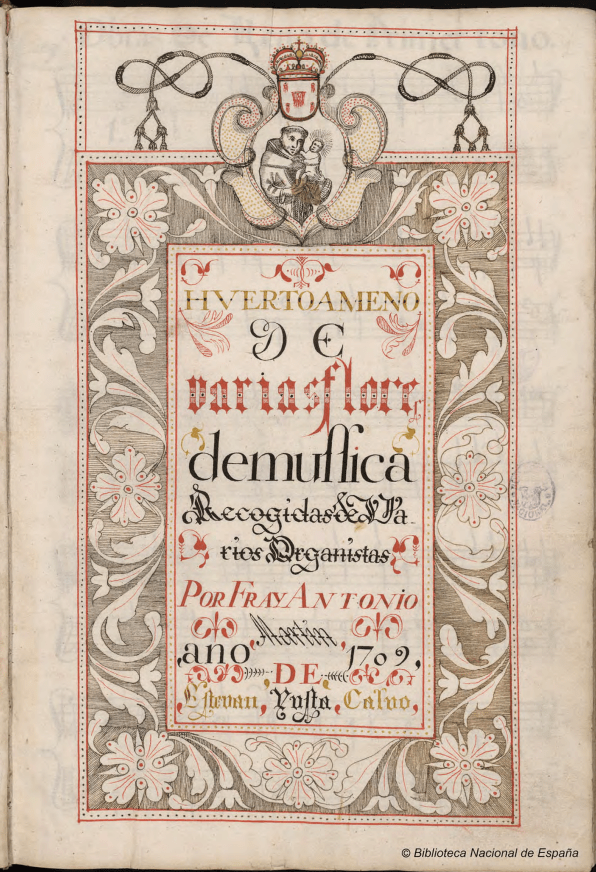 HVERTOAMENO
DE
variasflores
demuſſica
Recogidas de Va-
rios Organistas
POR FRAY ANTONIO
Martín
ano, 1709,
DE
Estevan, Yusta, Calvo,
© Biblioteca Nacional de España